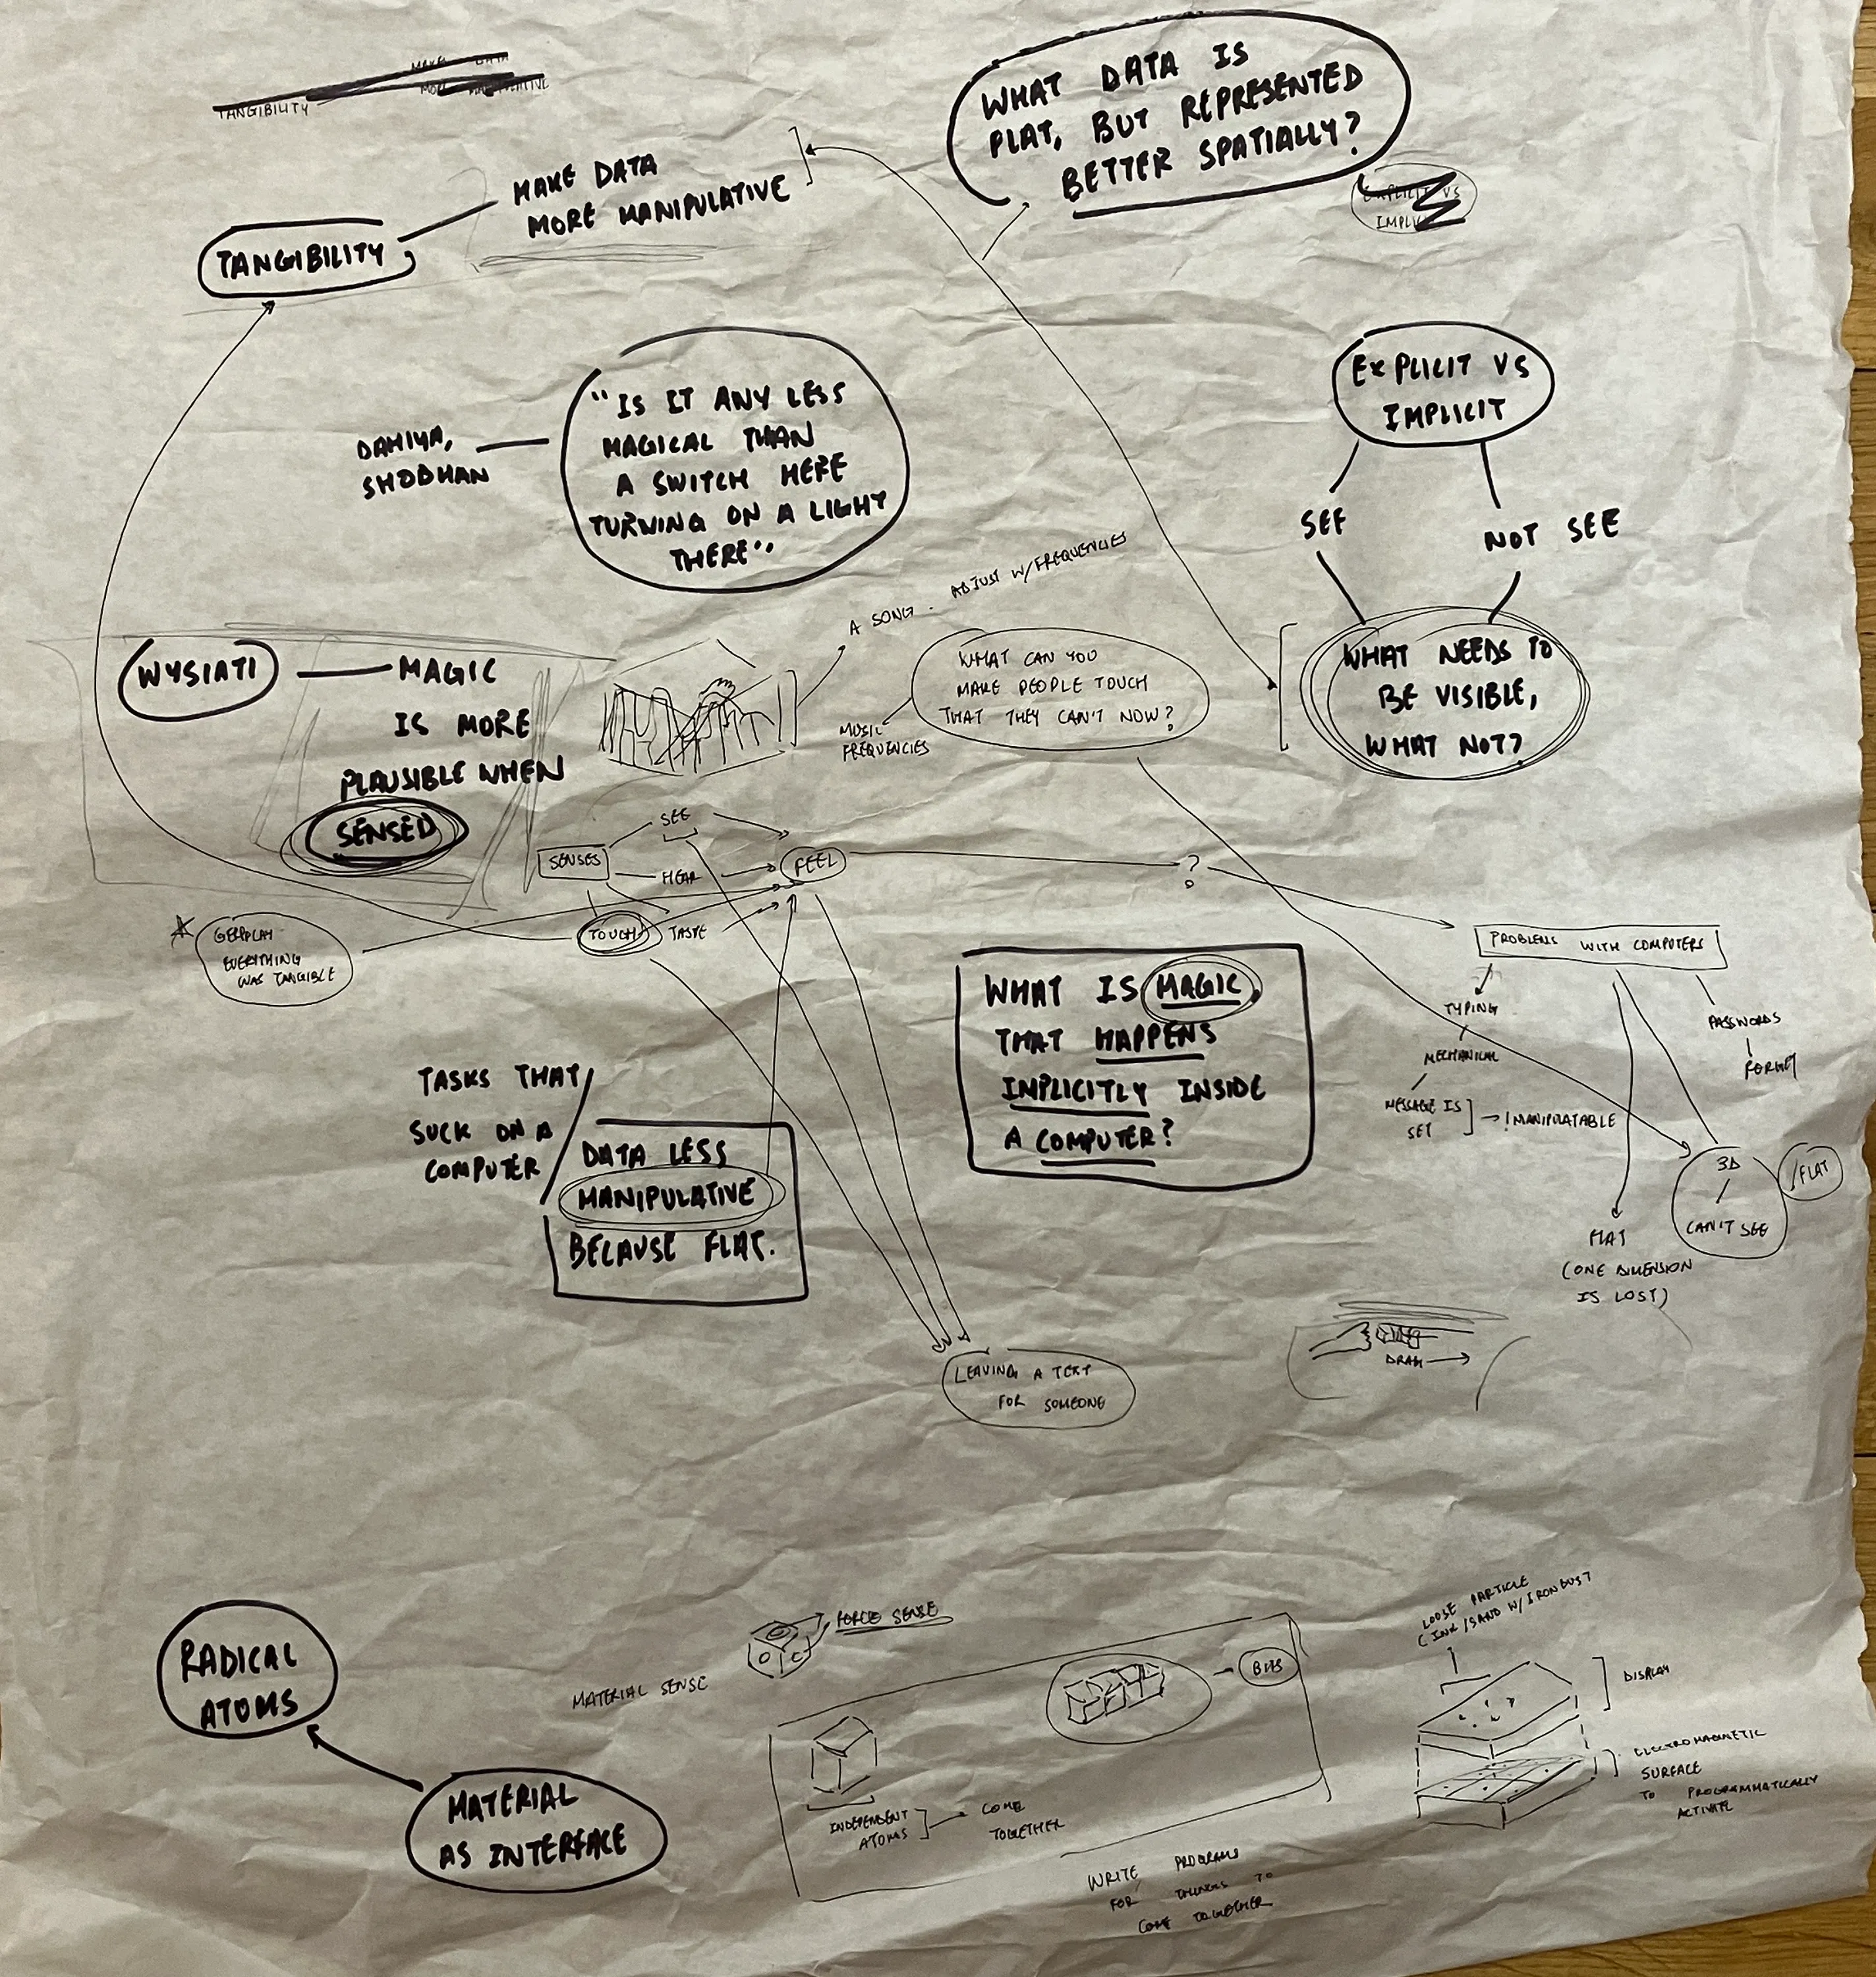 TANGIBILITY
WHAT DATA IS
FLAT, BUT REPRESENTED
BETTER SPATIALLY?
MAKE DATA
MORE MANIPULATIVE
TANGIBILITY
EXPLICIT VS
IMPLICIT
SEE
NOT SEE
WHAT NEEDS TO
BE VISIBLE,
WHAT NOT?
DAHIYA,
SHOBHAN
"IS IT ANY LESS
MAGICAL THAN
A SWITCH HERE
TURNING ON A LIGHT
THERE"
A SONG - ADJUST W/FREQUENCIES
WHAT CAN YOU
MAKE PEOPLE TOUCH
THAT THEY CAN'T NOW?
MUSIC
FREQUENCIES
WYSIATI
MAGIC
IS MORE
PLAUSIBLE WHEN
SENSED
SENSES
SEE
HEAR
TOUCH
TASTE
FEEL
?
EVERYTHING
WAS TANGIBLE
PROBLEMS WITH COMPUTERS
TYPING
MECHANICAL
MESSAGE IS
SET
!MANIPULATABLE
PASSWORDS
FORGET
3D
/
CAN'T SEE
/FLAT
FLAT
(ONE DIMENSION
IS LOST)
WHAT IS MAGIC,
THAT HAPPENS
IMPLICITLY INSIDE
A COMPUTER?
TASKS THAT
SUCK ON A
COMPUTER
DATA LESS
MANIPULATIVE
BECAUSE FLAT.
LEAVING A TEXT
FOR SOMEONE
DRAG
RADICAL
ATOMS
MATERIAL
AS INTERFACE
MATERIAL SENSE
FORCE SENSE
INDEPENDENT
ATOMS
COME
TOGETHER
BITS
WRITE PROGRAMS
FOR THINGS TO
COME TOGETHER
LOOSE PARTICLE
(INK/SAND W/IRON DUST
DISPLAY
ELECTROMAGNETIC
SURFACE
TO PROGRAMMATICALLY
ACTIVATE